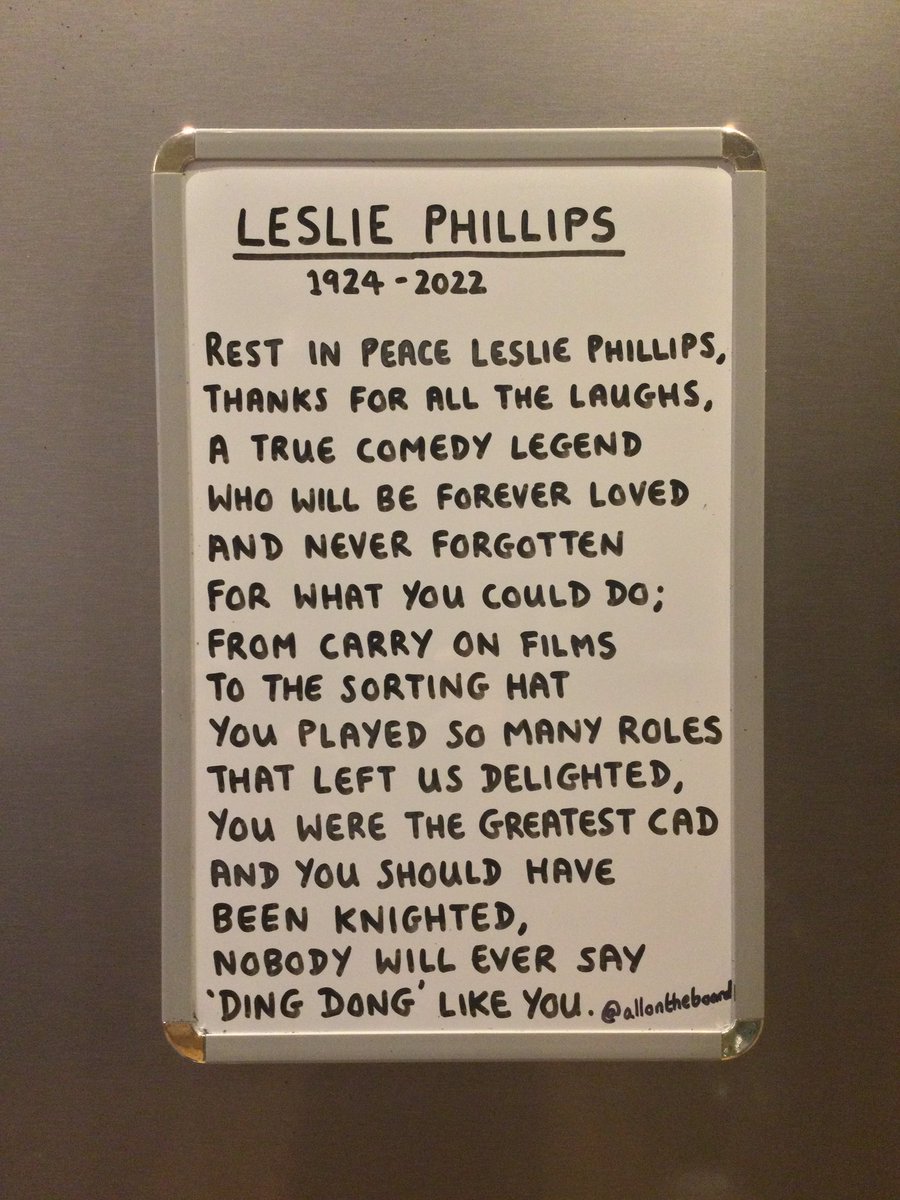 LESLIE PHILLIPS
1924-2022
REST IN PEACE LESLIE PHILLIPS,
THANKS FOR ALL THE LAUGHS,
A TRUE COMEDY LEGEND
WHO WILL BE FOREVER LOVED
AND NEVER FORGOTTEN
FOR WHAT YOU COULD DO;
FROM CARRY ON FILMS
TO THE SORTING HAT
YOU PLAYED SO MANY ROLES
THAT LEFT US DELIGHTED,
YOU WERE THE GREATEST CAD
AND YOU SHOULD HAVE
BEEN KNIGHTED,
NOBODY WILL EVER SAY
'DING DONG' LIKE YOU. @allontheboard